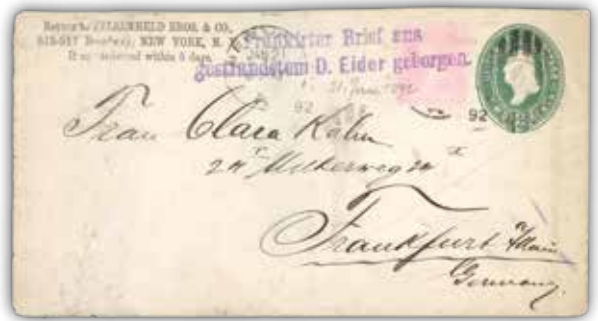 Return to FALKENHELD BROS. & CO,
NEW YORK, N. Y.
If not delivered within 5 days.
Frankirter Brief aus
gestrandetem D. Eider geborgen.
31. Jan. 1892
92
92
Frau Clara Kahn
Frankfurt a/Main
Germany.